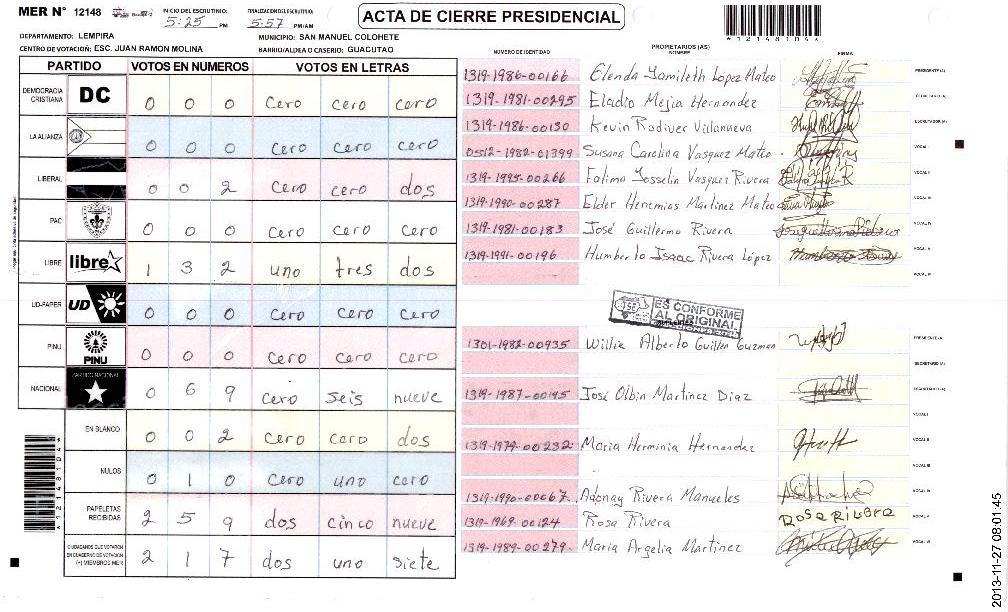 MER N° 12148
INICIO DEL ESCRUTINIO:
5:25 PM
FINALIZACION DEL ESCRUTINIO:
5:57 PM/AM
ACTA DE CIERRE PRESIDENCIAL
*12148104*
DEPARTAMENTO: LEMPIRA
MUNICIPIO: SAN MANUEL COLOHETE
CENTRO DE VOTACIÓN: ESC. JUAN RAMON MOLINA
BARRIO/ALDEA O CASERIO: GUACUTAO
PARTIDO VOTOS EN NUMEROS VOTOS EN LETRAS
DEMOCRACIA CRISTIANA DC 0 0 0 cero cero cero
LA ALIANZA 0 0 0 cero cero cero
LIBERAL 0 0 2 cero cero dos
PAC 0 0 0 cero cero cero
LIBRE libre 1 3 2 uno tres dos
UD-FAPER UD 0 0 0 cero cero cero
PINU PINU 0 0 0 cero cero cero
NACIONAL PARTIDO NACIONAL 0 6 9 cero seis nueve
EN BLANCO 0 0 2 cero cero dos
NULOS 0 1 0 cero uno cero
PAPELETAS RECIBIDAS 2 5 9 dos cinco nueve
CIUDADANOS QUE VOTARON EN CUADERNO DE VOTACION (+) MIEMBROS MER 2 1 7 dos uno siete
*12148104*
NUMERO DE IDENTIDAD PROPIETARIOS (AS) NOMBRE FIRMA
1319-1986-00166 Elenda Yamileth Lopez Mateo PRESIDENTE (A)
1319-1981-00295 Eladio Mejia Hernandez
1319-1986-00130 Kevin Rodiver Villanueva ESCRUTADOR (A)
0512-1982-01399 Susana Carolina Vasquez Mateo VOCAL I
1319-1995-00266 Fatima Josselin Vasquez Rivera VOCAL II
1319-1990-00287 Elder Heremias Martinez Mateo VOCAL III
1319-1981-00183 José Guillermo Rivera VOCAL IV
1319-1991-00196 Humberto Isaac Rivera López VOCAL V
VOCAL VI
TSE ES CONFORME AL ORIGINAL
1301-1982-00935 Willia Alberto Guillen Guzman PRESIDENTE (A)
SECRETARIO (A)
1319-1987-00145 José Olbin Martinez Diaz ESCRUTADOR (A)
VOCAL I
1319-1979-00232 Maria Herminia Hernandez VOCAL II
VOCAL III
1319-1990-00067 Adonay Rivera Manueles VOCAL IV
1319-1969-00124 Rosa Rivera Rosa Rivera VOCAL V
1319-1989-00279 Maria Argelia Martinez VOCAL VI
2013-11-27 08:01:45